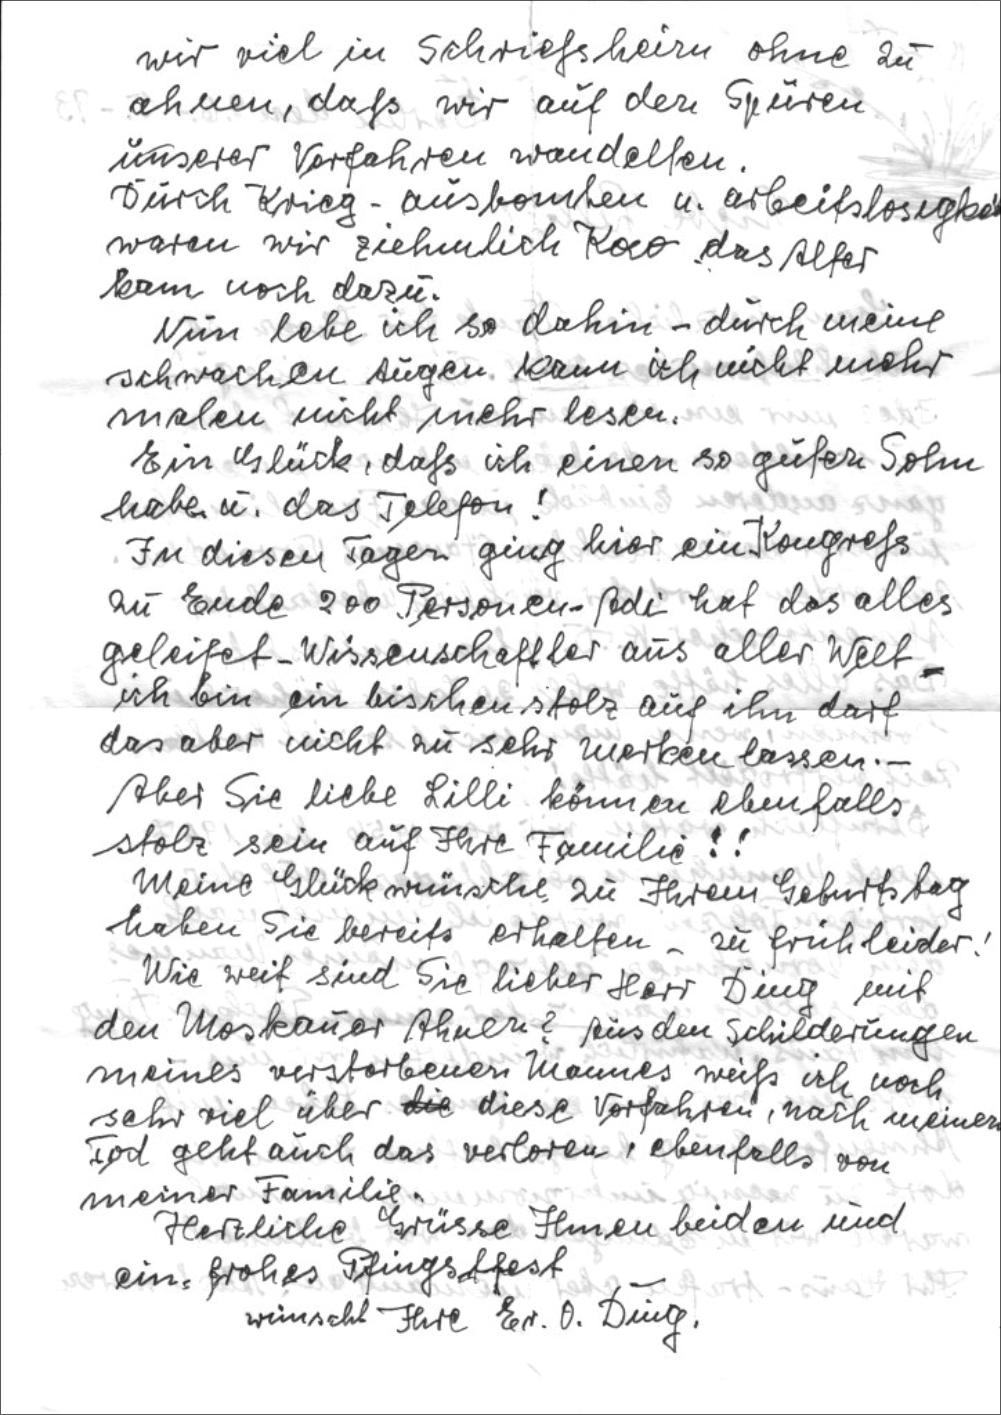 wir viel in Schriefsheim ohne zu
ahnen, dafs wir auf den Spuren
unserer Vorfahren wandelten.
Durch Krieg - ausbomben u. arbeitslosigkei
waren wir ziehmlich Kao das Alter
kam noch dazu.
Nun lebe ich so dahin - durch meine
schwachen Augen kann ich nicht mehr
malen nicht mehr lesen.
Ein Glück, dafs ich einen so guten Sohn
habe u. das Telefon!
In diesen Tagen ging hier ein Kongrefs
zu Ende 200 Personen - Adi hat das alles
geleitet - Wissenschaftler aus aller Welt -
ich bin ein bischen stolz auf ihn darf
das aber nicht zu sehr merken lassen. -
Aber Sie liebe Lilli können ebenfalls
stolz sein auf Ihre Familie!!
Meine Glückwünsche zu Ihrem Geburtstag
haben Sie bereits erhalten - zu früh leider!
Wie weit sind Sie lieber Herr Ding mit
den Moskauer Ahnen? Aus den Schilderungen
meines verstorbenen Mannes weifs ich noch
sehr viel über die diese Vorfahren, nach meinen
Tod geht auch das verloren, ebenfalls von
meiner Familie.
Herzliche Grüsse Ihnen beiden und
ein frohes Pfingstfest
wünscht Ihre Er. O. Ding.